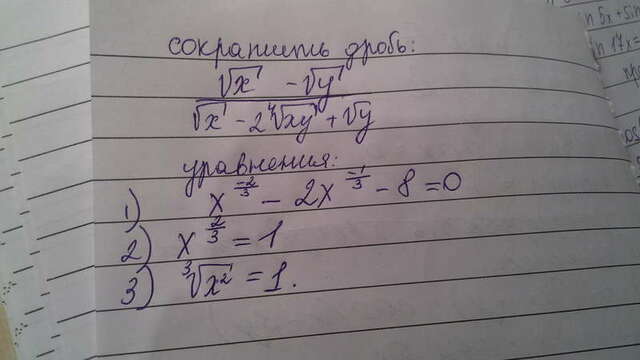 сократить дробь:
(√x - √y) / (√x - 2∜xy + √y)
уравнения:
1) x^(-2/3) - 2x^(-1/3) - 8 = 0
2) x^(2/3) = 1
3) ∛x² = 1.